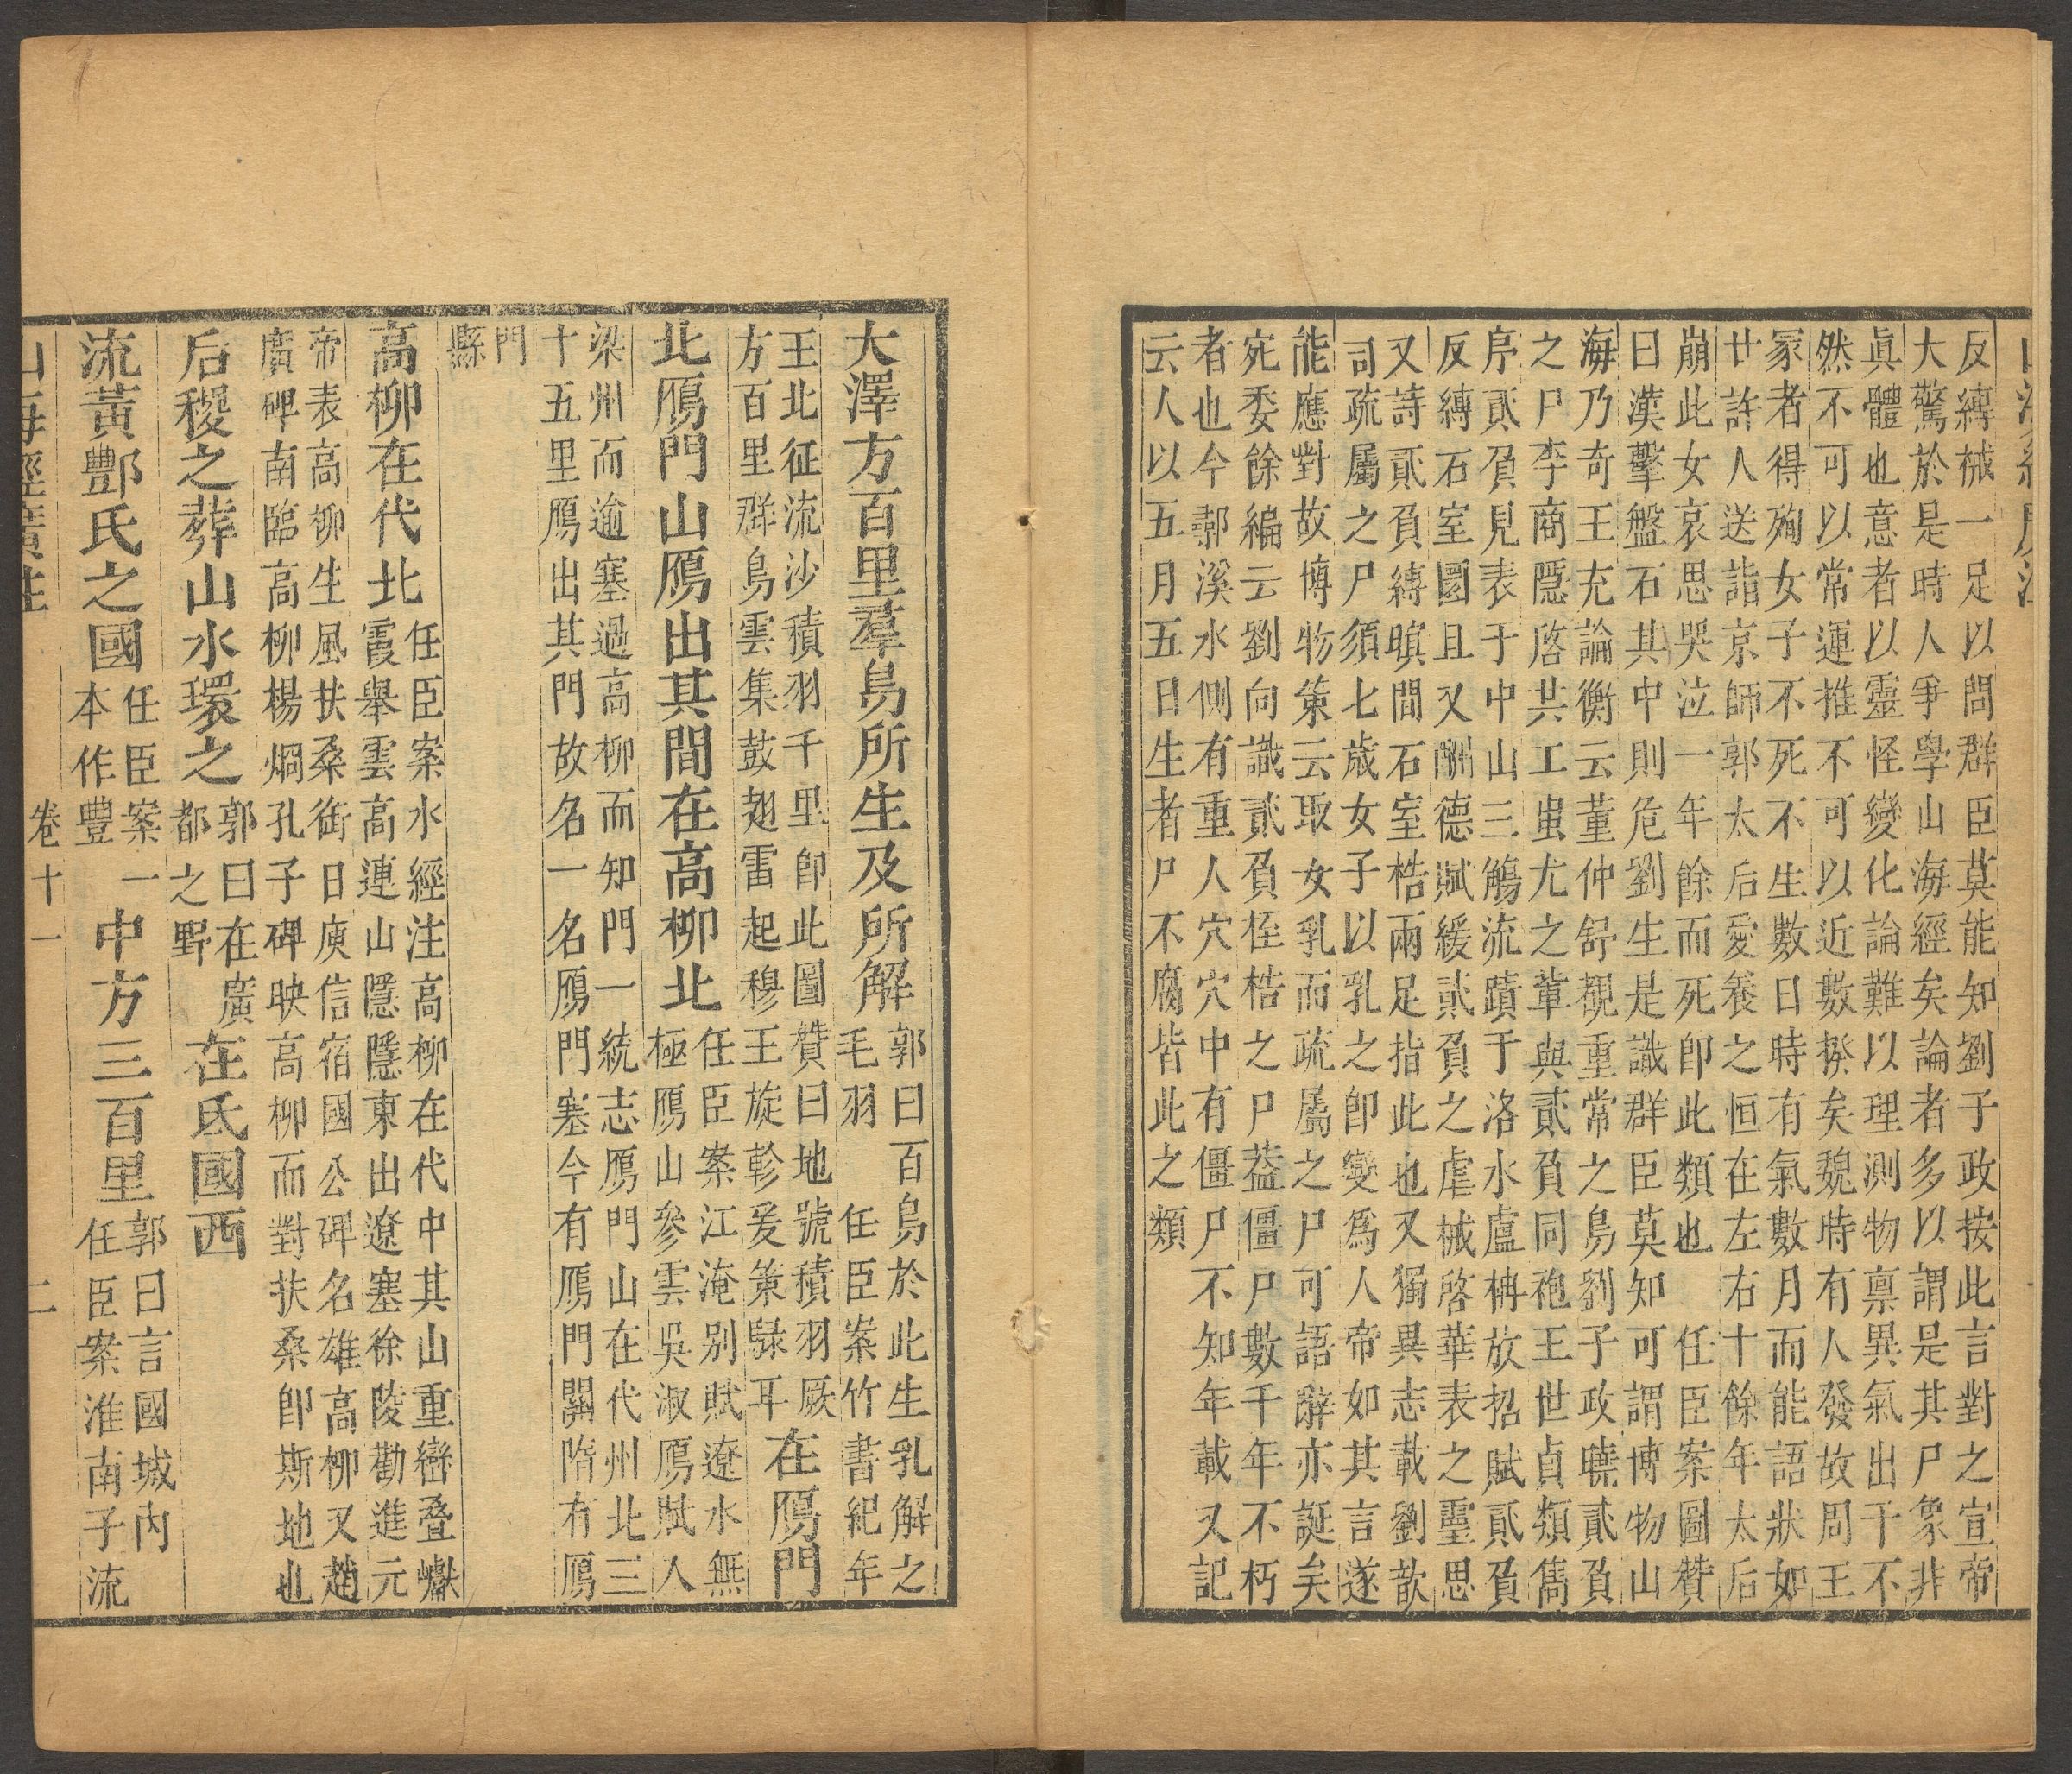 山海經廣注
反縛械一足以問群臣莫能知劉子政按此言對之宣帝
大驚於是時人爭學山海經矣論者多以謂是其尸象非
眞體也意者以靈怪變化論難以理測物稟異氣出于不
然不可以常運推不可以近數揆矣魏時有人發故周王
冢者得殉女子不死不生數日時有氣數月而能語狀如
廿許人送詣京師郭太后愛養之恒在左右十餘年太后
崩此女哀思哭泣一年餘而死卽此類也 任臣案圖贊
曰漢擊盤石其中則危劉生是識群臣莫知可謂博物山
海乃奇王充論衡云董仲舒覩重常之鳥劉子政曉貳負
之尸李商隱啓共工蚩尤之輩與貳負同袍王世貞類雋
序貳負見表于中山三觴流蹟于洛水盧柟放招賦貳負
反縛石室圜且又酬德賦緩貳負之虐械啓華表之靈思
又詩貳負縛暝間石室梏兩足指此也又獨異志載劉歆
司疏屬之尸須七歲女子以乳之卽變爲人帝如其言遂
能應對故博物策云取女乳而疏屬之尸可語辭亦誕矣
宛委餘編云劉向識貳負桎梏之尸葢僵尸數千年不朽
者也今鄣溪水側有重人穴穴中有僵尸不知年載又記
云人以五月五日生者尸不腐皆此之類
大澤方百里羣鳥所生及所解
郭曰百鳥於此生乳解之
毛羽 任臣案竹書紀年
王北征流沙積羽千里卽此圖贊曰地號積羽厥
方百里群鳥雲集鼓翅雷起穆王旋軫爰策騄耳
在鴈門
北鴈門山鴈出其間在高柳北
任臣案江淹别賦遼水無
極鴈山參雲吳淑鴈賦人
梁州而逾塞過高柳而知門一統志鴈門山在代州北三
十五里鴈出其門故名一名鴈門塞今有鴈門關隋有鴈
門
縣
高柳在代北
任臣案水經注高柳在代中其山重巒疊巘
霞舉雲高連山隱隱東出遼塞徐陵勸進元
帝表高柳生風扶桑銜日庾信宿國公碑名雄高柳又趙
廣碑南臨高柳楊烱孔子碑映高柳而對扶桑卽斯地也
后稷之葬山水環之
郭曰在廣
都之野
在氐國西
流黃酆氏之國
任臣案一
本作豐
中方三百里
郭曰言國城内
任臣案淮南子流
山海經廣注 卷十一 二